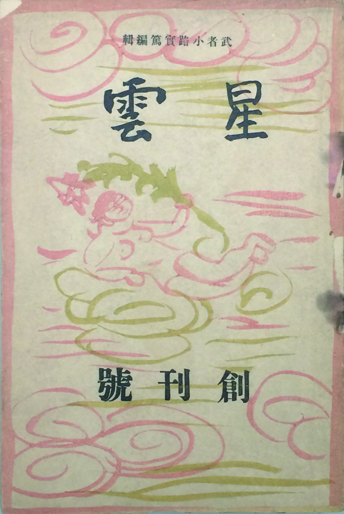 武者小路實篤編輯
星雲
創刊號